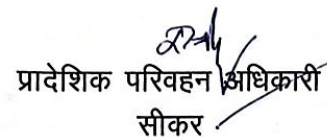 प्रादेशिक परिवहन अधिकारी
सीकर